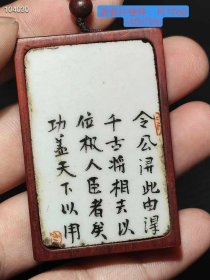 104090
令公得此由得
千古將相夫以
位极人臣者矣
功盖天下以用